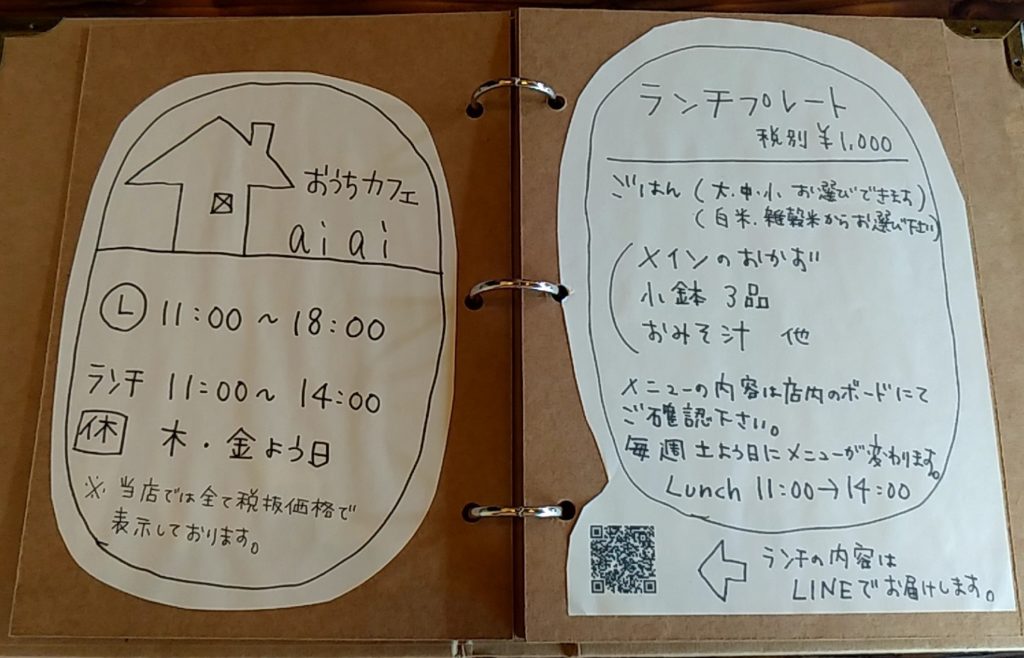 おうちカフェ
aiai
L 11:00～18:00
ランチ 11:00～14:00
休 木・金よう日
※当店では全て税抜価格で
表示しております。
ランチプレート
税別¥1,000
ごはん(大・中・小 お選びできます)
(白米・雑穀米からお選び下さい)
メインのおかず
小鉢 3品
おみそ汁 他
メニューの内容は店内のボードにて
ご確認下さい。
毎週土よう日にメニューが変わります。
Lunch 11:00→14:00
ランチの内容は
LINEでお届けします。